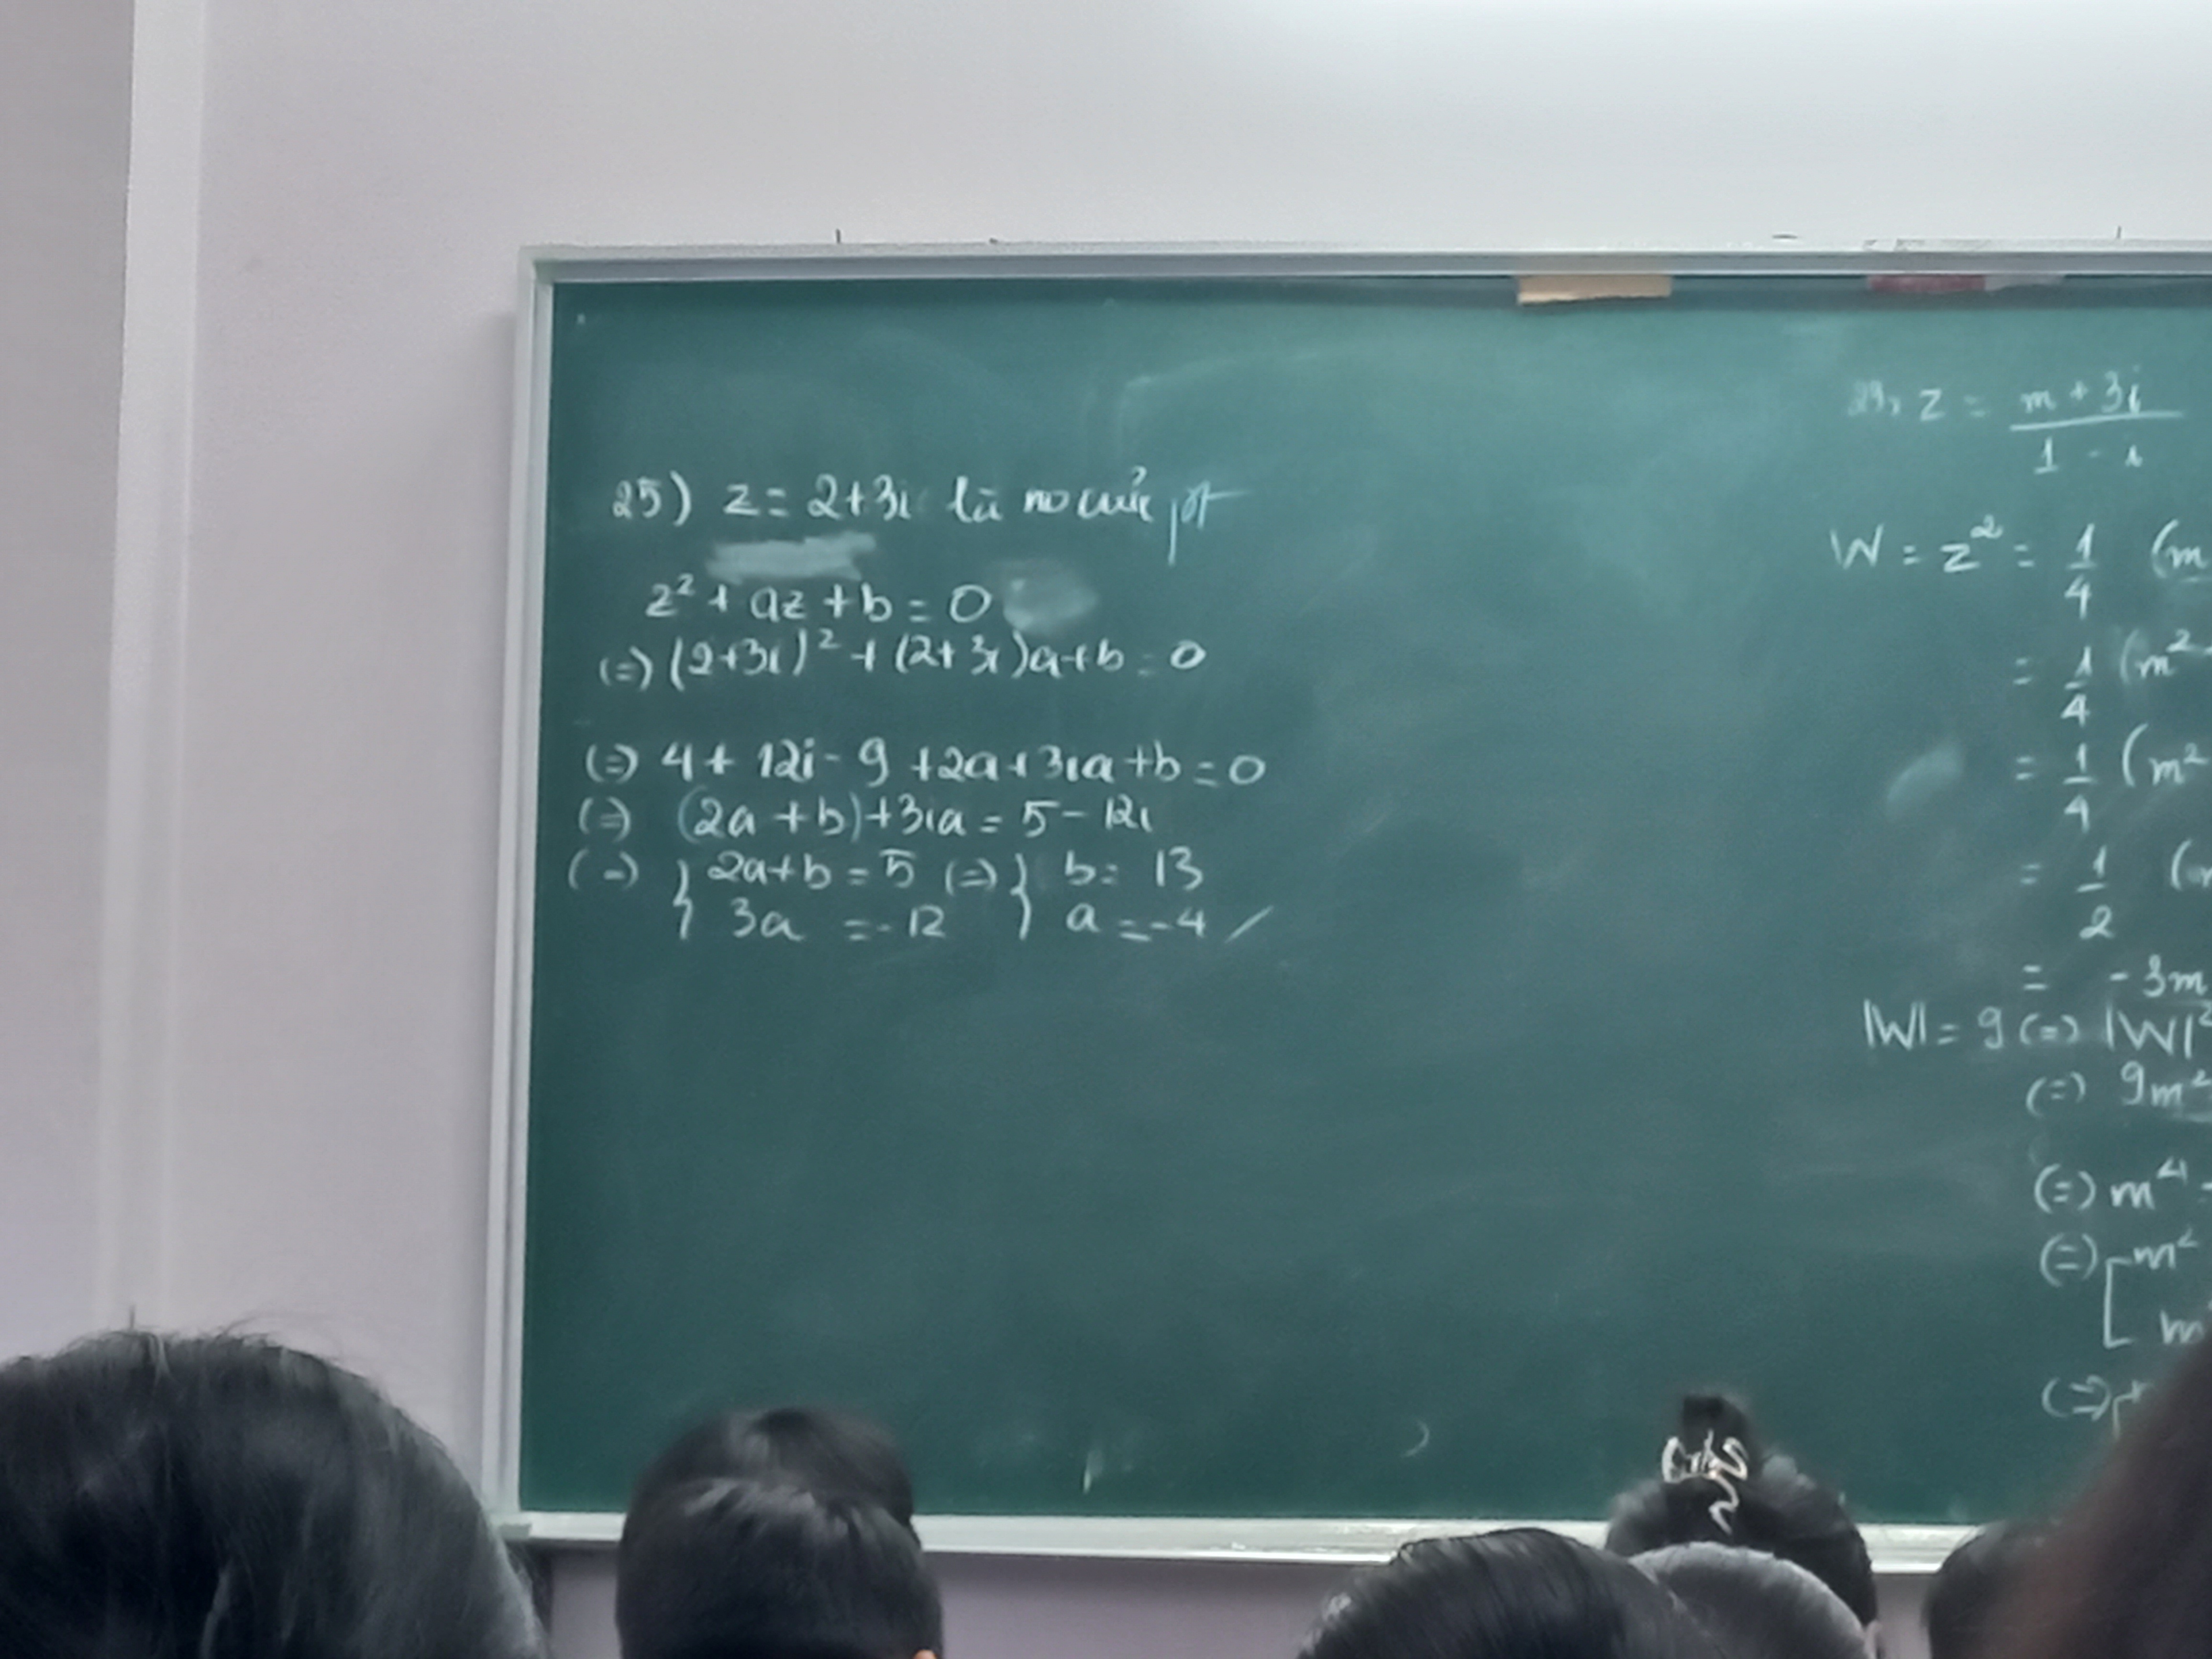 25) z = 2+3i là no của pt
z² + az + b = 0
(=) (2+3i)² + (2+3i)a+b = 0
(=) 4 + 12i - 9 + 2a + 3ia + b = 0
(=) (2a + b) + 3ia = 5 - 12i
(=) { 2a+b = 5 (=) { b = 13
3a = -12 a = -4
29, z = m + 3i / 1 - i
W = z² = 1/4 (m
= 1/4 (m²
= 1/4 (m²
= 1/2 (
= - 3m
|W| = 9 (=) |W|²
(=) 9m²
(=) m⁴
(=) [ m²
m
(=)